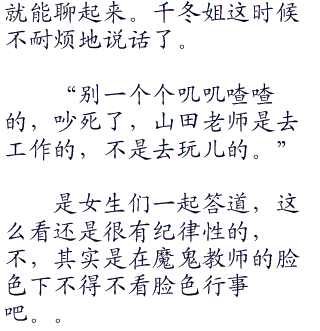 就能聊起来。千冬姐这时候
不耐烦地说话了。
“别一个个叽叽喳喳
的，吵死了，山田老师是去
工作的，不是去玩儿的。”
是女生们一起答道，这
么看还是很有纪律性的，
不，其实是在魔鬼教师的脸
色下不得不看脸色行事
吧。。